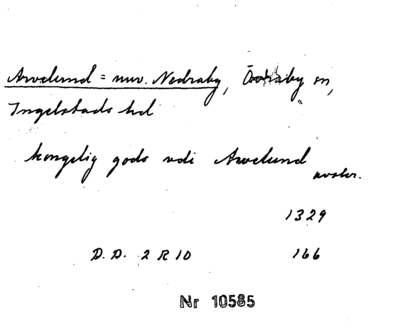 Arvelund = nuv. Nedraby, Östraby sn,
Ingelstads hd
kongelig gods udi Arvelund
1329
D. D. 2 R 10 166
Nr 10585